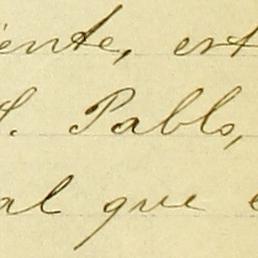 iente, est
S. Pablo,
al que e